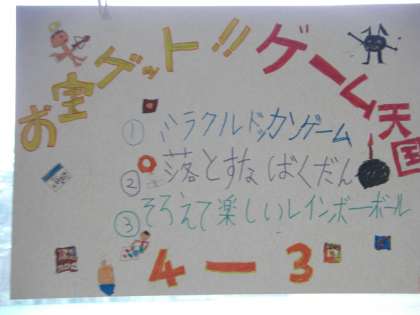 お宝ゲット!! ゲーム天国
① ミラクルドッカンゲーム
② 落とすなばくだん
③ そろえて楽しいレインボーボール
4－3